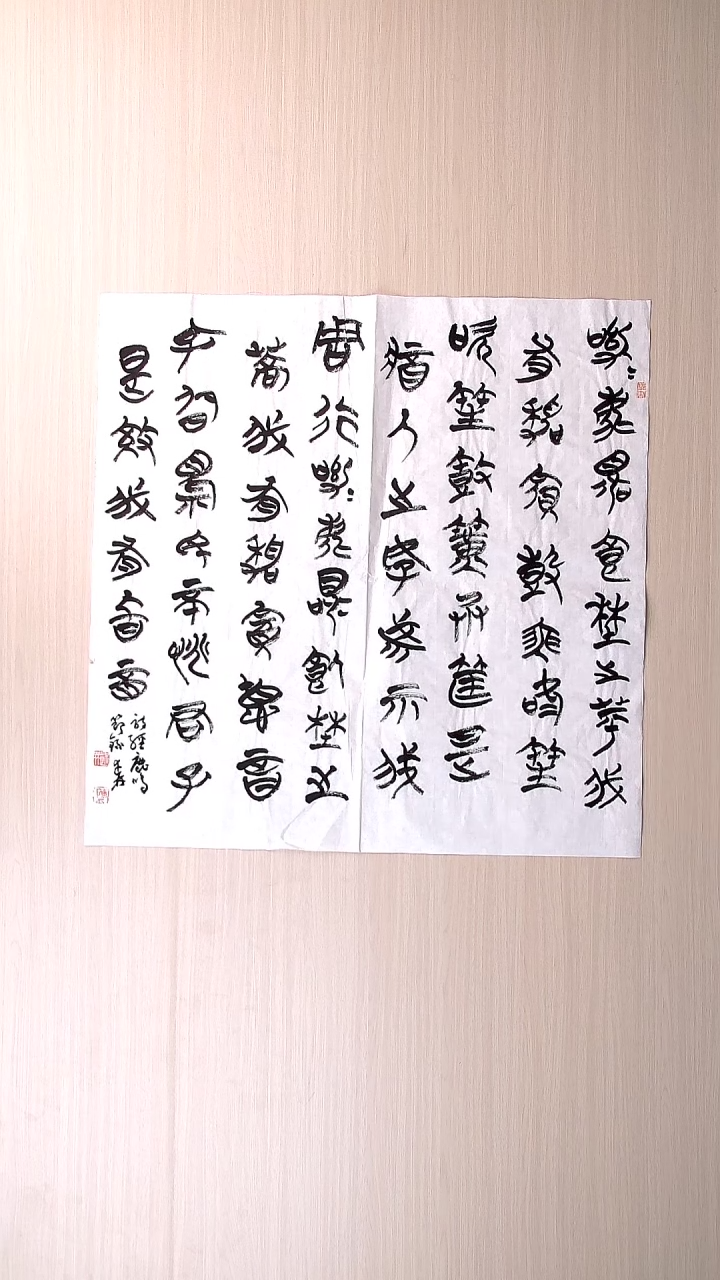 呦〻鹿鳴食埜之苹我
有嘉賓鼓瑟吹笙
吹笙鼓簧承筐是
將人之好我示我
周行呦〻鹿鳴食埜之
蒿我有嘉賓德音
孔昭視民不恌君子
是效我有旨酒
詩經鹿鳴
節錄